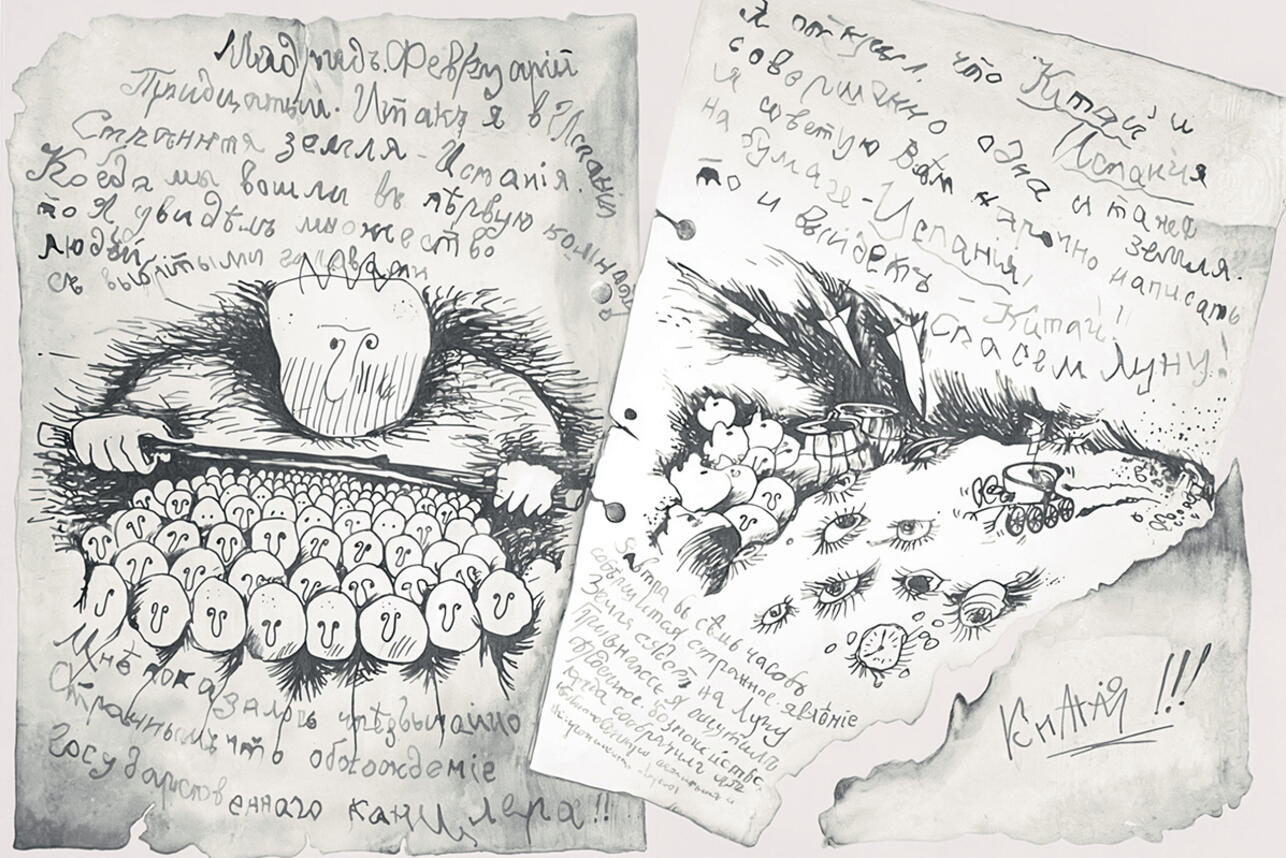 Мадридъ. Февруарій
Тридцатый. Итакъ я в Испаніи
Странная земля - Испанія.
Когда мы вошли въ пѣрвую комнату
то Я увидѣлъ множество
людѣй
съ выбритыми головами
Мнѣ показалось чрезвычайно
Страннымъ что обхождение
Государственнаго канцлера!!
Я открыл, что Китай и Испанія
совершенно одна и таже земля.
Я советую Всѣм нарочно написать
на бумаге - Испанія,
то и выйдетъ - Китай!!
Спасем Луну!
Завтра въ сѣмь часовъ
совершится странное явлѣніе
Земля сядетъ на Луну
Признаюсь я ощутилъ
сердечное безпокойство,
когда сообразил
Китай!!!